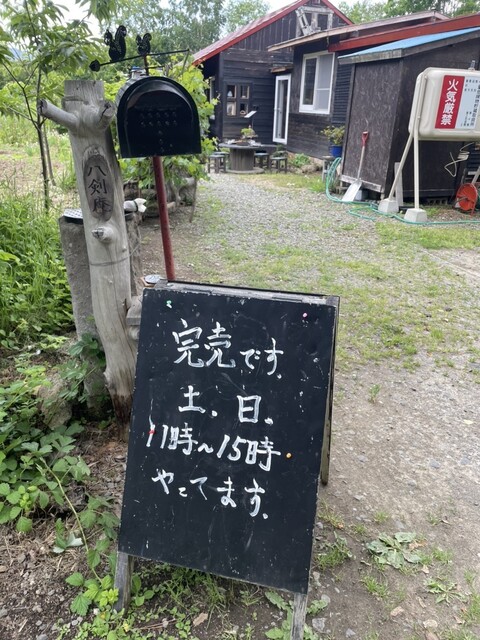 八剣庵
火気厳禁
完売です。
土、日、
11時〜15時
やってます。